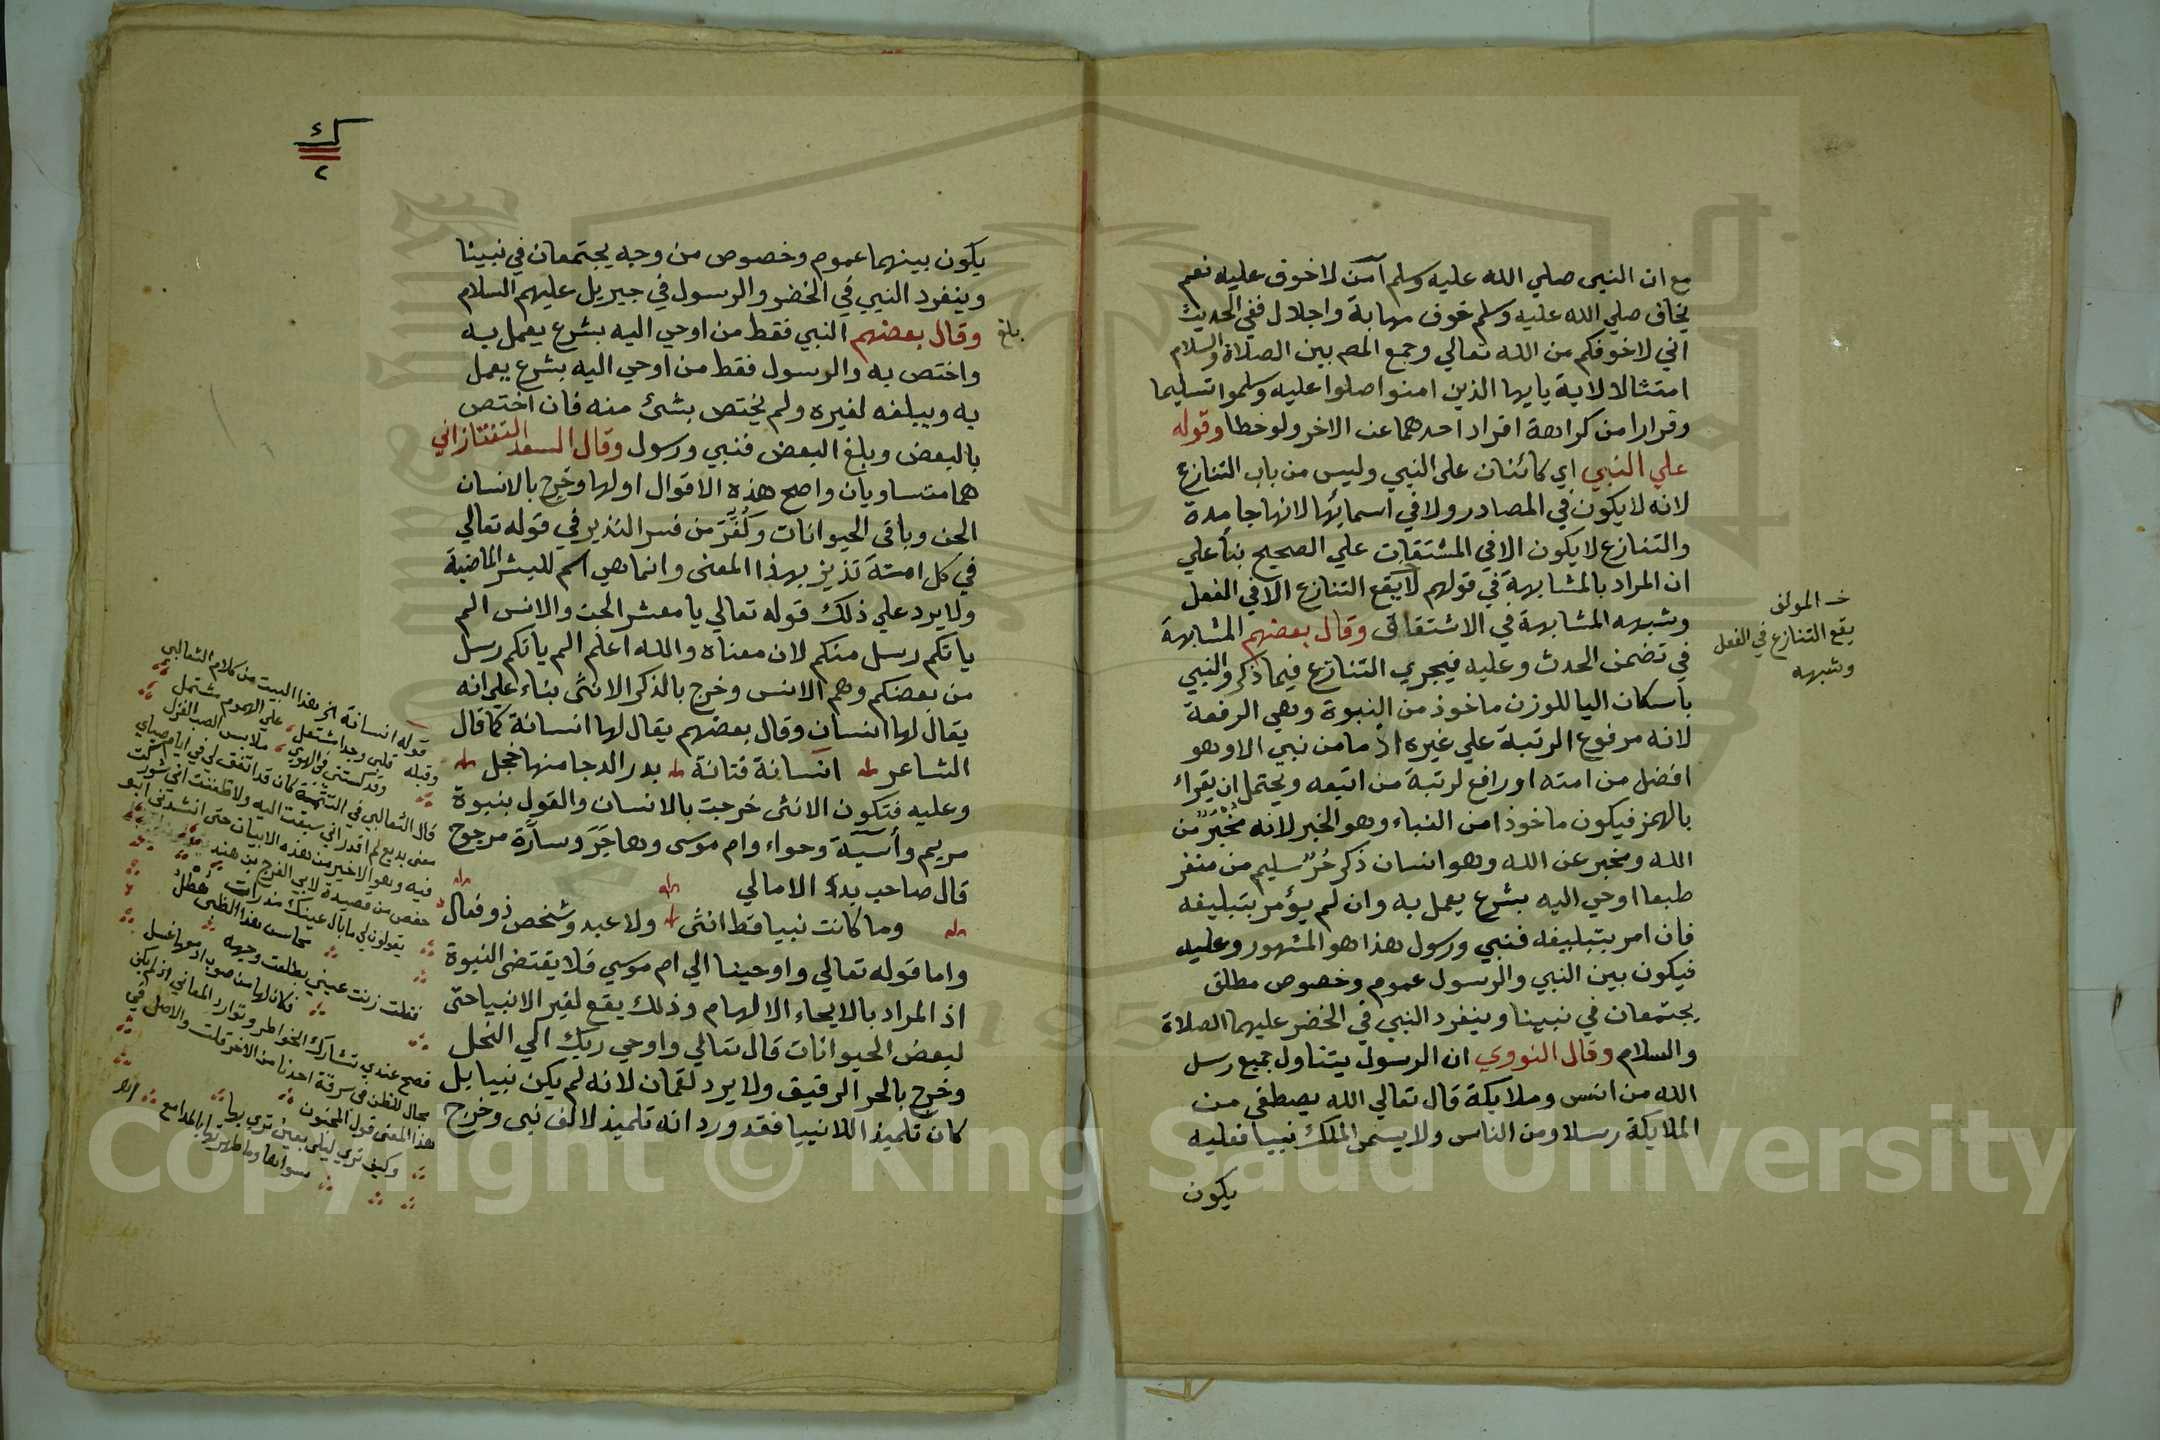 مع ان النبى صلي الله عليه وسلم آمن لا خوف عليه نعم
يخاف صلي الله عليه وسلم خوف مهابة واجلال ففي الحديث
اني لاخوفكم من الله تعالي وجمع المص بين الصلاة والسلام
امتثالا لاية يايها الذين امنوا صلوا عليه وسلموا تسليما
وفرارا من كراهة افراد احدهما عن الاخر ولو خطا وقوله
علي النبي اي كائنان على النبي وليس من باب التنازع
لانه لا يكون في المصادر ولا في اسمائها لانها جامدة
والتنازع لا يكون الا في المشتقات علي الصحيح بنأ علي
ان المراد بالمشابهة في قولهم لا يقع التنازع الا في الفعل
وشبهه المشابهة في الاشتقاق وقال بعضهم المشابهة
في تضمن الحدث وعليه فيجري التنازع فيما ذكر والنبي
باسكان اليا للوزن ماخوذ من النبوة وهي الرفعة
لانه مرفوع الرتبة علي غيره اذ ما من نبي الا وهو
افضل من امته او رافع لرتبة من اتبعه ويحتمل ان يقراء
بالهمز فيكون ماخوذا من النباء وهو الخبر لانه مُخْبَرٌ من
الله ومخبر عن الله وهو انسان ذكر حُرٌ سليم من منفر
طبعا اوحي اليه بشرع يعمل به وان لم يؤمر بتبليغه
فان امر بتبليغه فنبي ورسول هذا هو المشهور وعليه
فيكون بين النبي والرسول عموم وخصوص مطلق
يجتمعان في نبينا وينفرد النبي في الخضر عليهما الصلاة
والسلام وقال النووي ان الرسول يتناول جميع رسل
الله من انس وملايكة قال تعالي الله يصطفي من
الملايكة رسلا ومن الناس ولا يسمى الملك نبيا فعليه
يكون
خـ المولف
يقع التنازع في الفعل
وشبهه
ك
٢
يكون بينهما عموم وخصوص من وجه يجتمعان في نبينا
وينفرد النبي في الخضر والرسول في جبريل عليهم السلام
وقال بعضهم النبي فقط من اوحي اليه بشرع يعمل به
بلغ
واختص به والرسول فقط من اوحي اليه بشرع يعمل
به ويبلغه لغيره ولم يختص بشئ منه فان اختص
بالبعض وبلغ البعض فنبي ورسول وقال السعد التفتازاني
هما متساويان واصح هذه الاقوال اولها وخرج بالانسان
الجن وباقي الحيوانات وكُفِّرَ من فسر النذير في قوله تعالي
في كل امة نذير بهذا المعنى وانما هي اسم للبشر الماضية
ولا يرد علي ذلك قوله تعالي يا معشر الجن والانس الم
ياتكم رسل منكم لان معناه والله اعلم الم ياتكم رسل
من بعضكم وهم الانس وخرج بالذكر الانثى بناء علي انه
يقال لها انسان وقال بعضهم يقال لها انسانة كما قال
الشاعر انسانة فتانة بدر الدجا منها خجل
وعليه فتكون الانثى خرجت بالانسان والقول بنبوة
مريم وأسية وحواء وام موسى وهاجَرَ وسارَة مرجوح
قال صاحب بدء الامالي
وما كانت نبيا قط انثى ولا عبد وشخص ذو فعال
واما قوله تعالي واوحينا الي ام موسي فلا يقتضى النبوة
اذ المراد بالايحاء الالهام وذلك يقع لغير الانبيا حتى
لبعض الحيوانات قال تعالي واوحي ربك الي النحل
وخرج بالحر الرقيق ولا يرد لقمان لانه لم يكن نبيا بل
كان تلميذ اللانبيا فقد ورد انه تلميذ لالف نبى وخرج
قوله انسانة الخ هذا البيت من كلام الثعالبي
وقبله قلبى وجدا مشتعل علي الهموم مشتمل
وقد كستنى فى الهوي ملابس الصب الغزل
قال الثعالبي في التتمة كان قد اتفق لي في ايام صباي
معنى بديع لم اقدر اني سبقت اليه ولا ظننت انى شوركت
فيه وهو الاخير من هذه الابيات حتى انشدنى ابو
حفص من قصيدة لابي الفرج بن هند
يقولون لي ما بال عينك مذ رات محاسن هذا الظبى هُطلُ
فقلت زنت عيني بطلعت وجهه فكان لها من صوب ادمعها غسل
فصح عندي تشارك الخواطر وتوارد المعاني اذ لم يكن
مجال للظن في سرقة احدنا من الاخر قلت والاصل في
هذا المعنى قول المجنون
وكيف تري ليلى بعين تري بها سواها وما طهرتها بالمدامع اهـ
Copyright © King Saud University